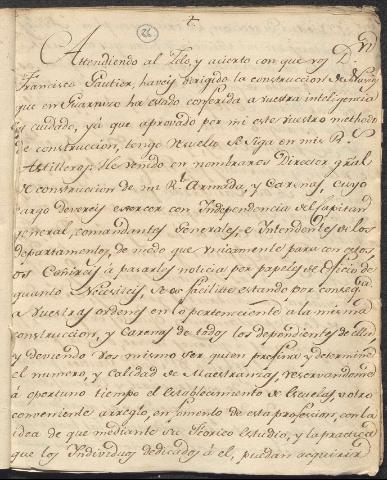 22
Attendiendo al Zelo, y acierto con que vos Dn
Francisco Gautier, haveis dirigido la construccion de Navios
que en Guarnizo ha estado conferida a vuestra inteligencia
y cuidado, yá que aprovado por mi este vuestro methodo
de construccion, tengo resuelto se siga en mis Rs.
Astilleros: He venido en nombraros Director gral
de construccion de mi Rl. Armada, y Carenas, cuyo
cargo devereis exercer con Independencia del Capitan
general, comandantes Generales, e Intendentes de los
departamentos, de modo que unicamente para con estos
os ceñireis á pasarles noticia por papeles de oficio de
quanto necesiteis, se os facilite estando por conseqa
a vuestras ordenes en lo perteneciente a la misma
construccion, y Carenas de todos los dependientes de ellas,
y deviendo vos mismo ser quien profiera y determine
el numero, y calidad de Maestranzas, reservandome
á oportuno tiempo el establecimiento de Escuelas, y otro
conveniente arreglo, en fomento de esta profesion, con la
idea de que mediante su Teorico estudio, y la practica
que los Individuos dedicados á él, puedan acquirir